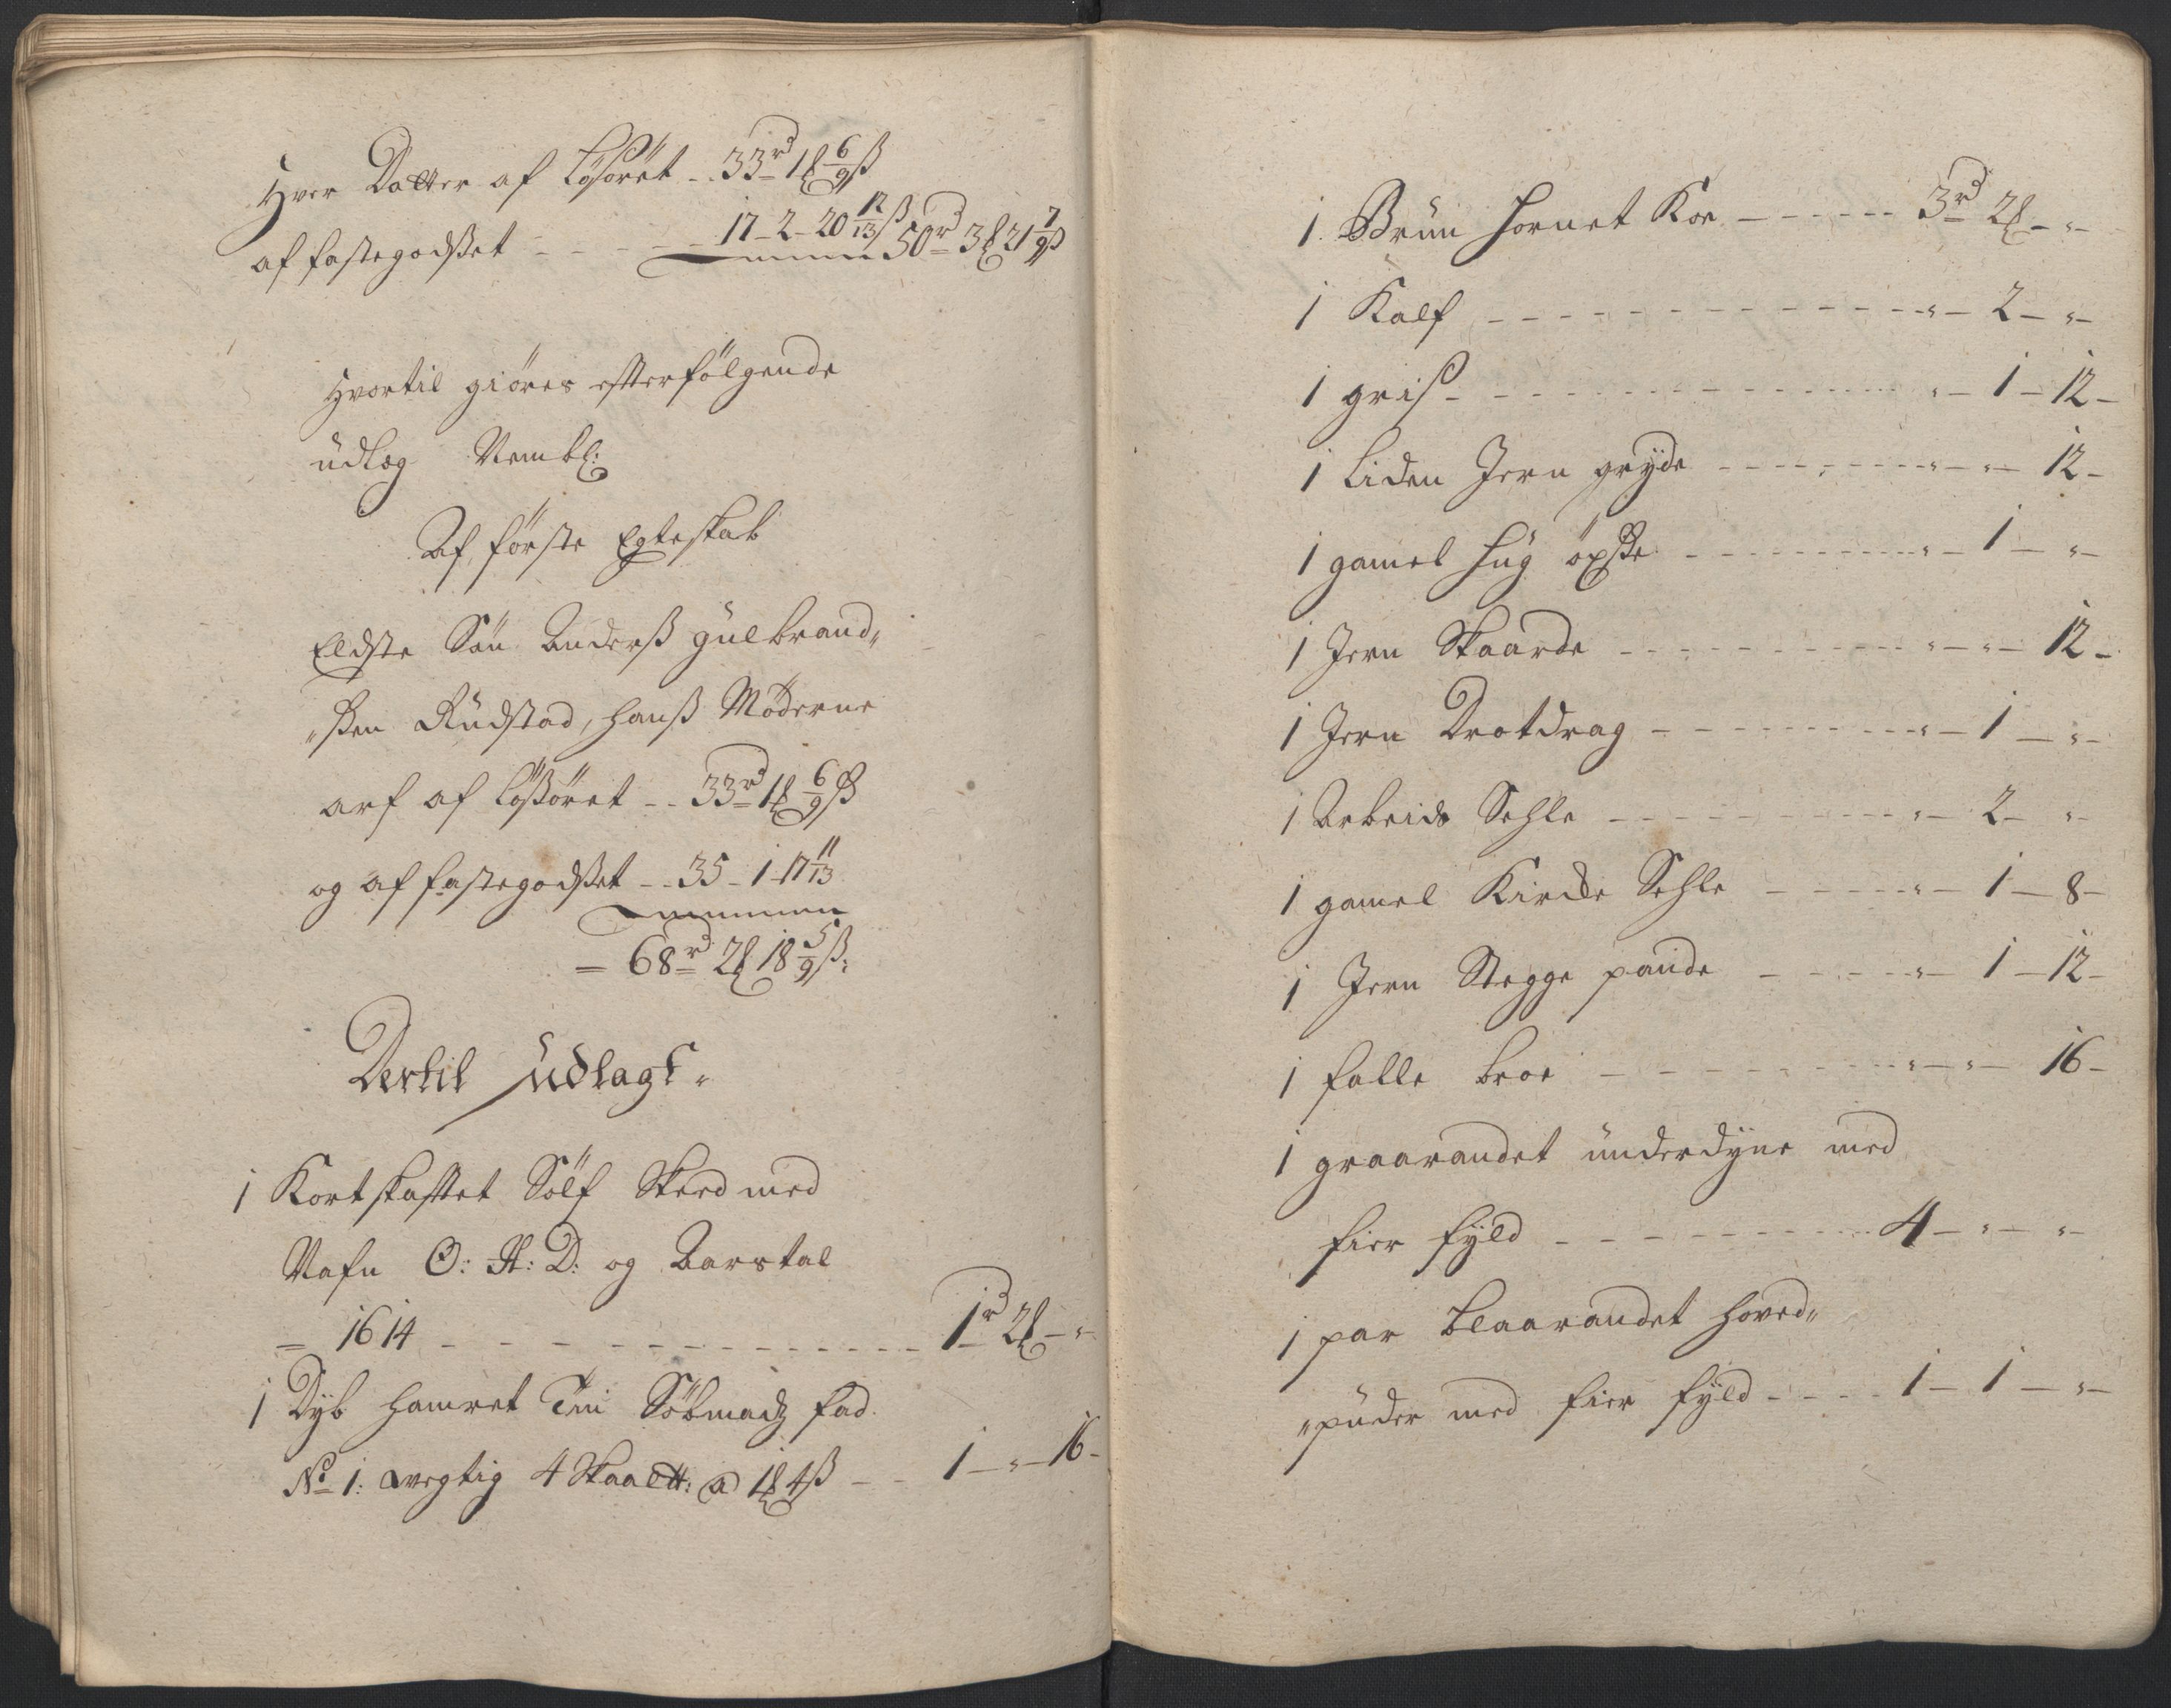 Hver Datter af Løsøret .. 33rd 1℔ 6/9 ß
af fastegodsset - - - - 17 - 2 - 20 12/13 ß 50rd 3℔ 21 7/9 ß
Hvortil giøres efterfølgende
üdlæg Nembl:
Af første Egteskab
Eldste Søn Anderss gülbrand„
„ssen Rüdstad, hanss Møderne
arf af Løssøret - - 33rd 1℔ 6/9 ß
og af fastegodsset - - 35 - 1 - 17 11/13
= 68rd 2℔ 18 5/9 ß:
Dertil Üdlagt„
1 Kort skaftet Sølf Skeed med
Nafn O: H: D: og Aarstal
= 1614 - - - - - - - - - 1rd 2℔ - „
1 Dyb hamret Tin Søbmadz fad
No 1: vegtig 4 Skaal℔: a 1℔ 4ß - - 1 - „ - 16 -
1. Brün Hornet Koe - - - - - 3rd 2℔ - „ -
1 Kalf - - - - - - - - - „ - 2 - „ -
1 griss - - - - - - - - - „ - 1 - 12 -
1 Liden Jern gryde - - - - - - „ - „ - 12 -
1 gamel Hüg øxsse - - - - - - „ - 1 - „ -
1 Jern Skaarde - - - - - - „ - „ - 12 -
1 Jern Drotdrag - - - - - - „ - 1 - „ -
1 Arbeids Sehle - - - - - - „ - 2 - „ -
1 gamel Kircke Sehle - - - - „ - 1 - 8 -
1 Jern Stegge pande - - - - „ - 1 - 12 -
1 falle broe - - - - - - „ - „ - 16 -
1 graarandet ünderdyne med
fier fyld - - - - - - - 4 - „ - „ -
1 par blaarandet Hoved„
„püder med fier fyld - - - - 1 - 1 - „ -